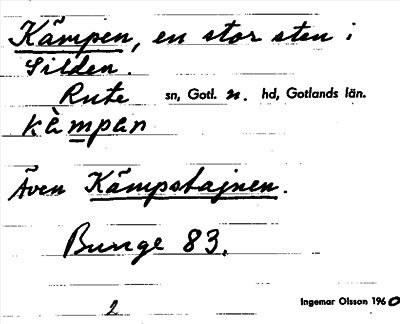 Kämpen, en stor sten i
Silden.
Rute sn, Gotl. n. hd, Gotlands län.
kämpan
Även Kämpstajnen.
Bunge 83.
2
Ingemar Olsson 1960